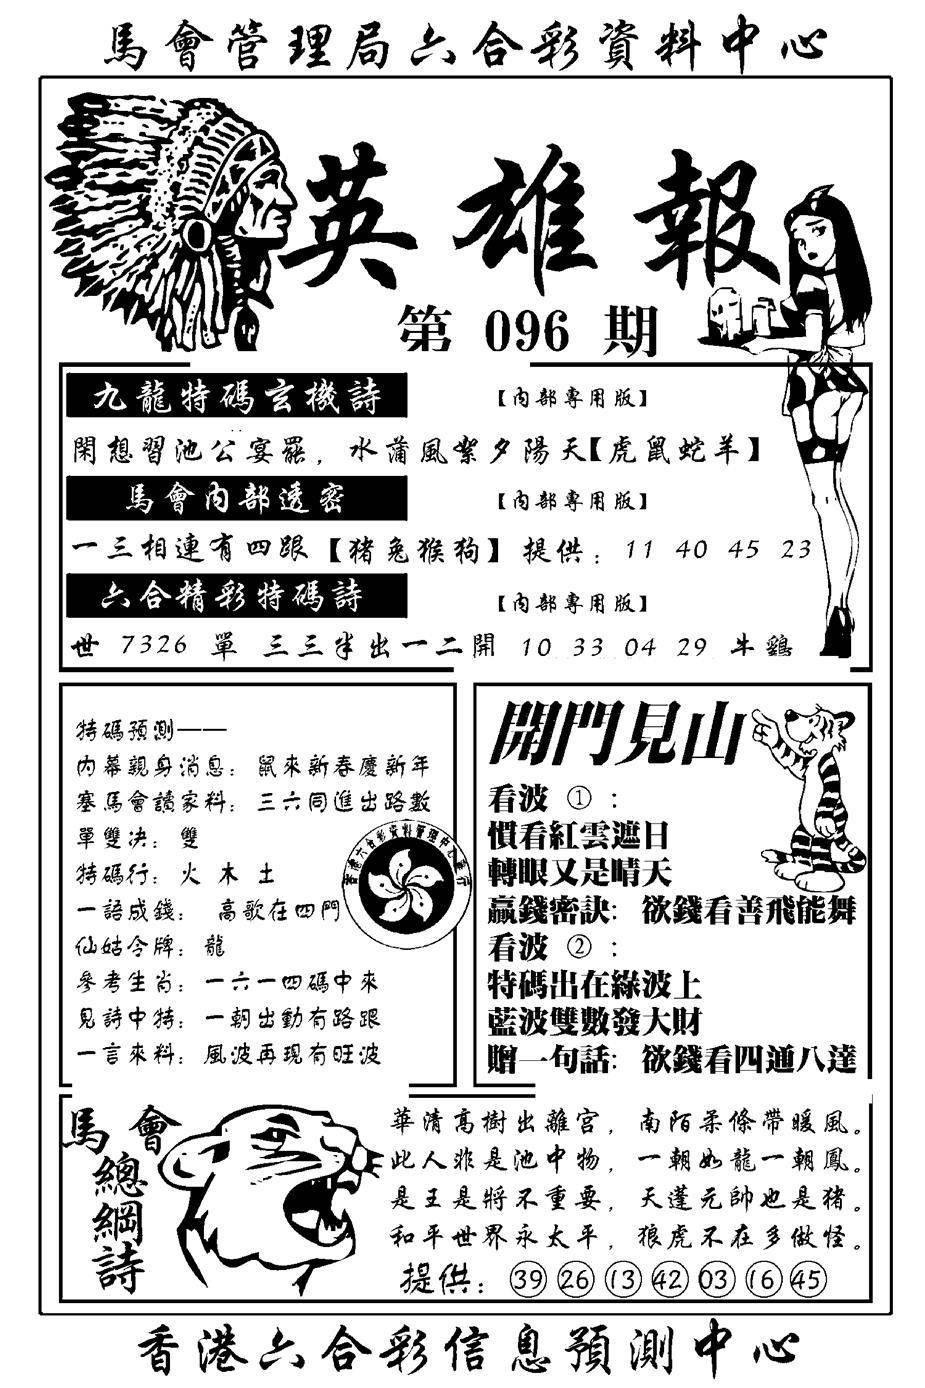 馬會管理局六合彩資料中心
英雄報
第 096 期
九龍特碼玄機詩 【內部專用版】
閑想習池公宴罷，水蒲風絮夕陽天【虎鼠蛇羊】
馬會內部透密 【內部專用版】
一三相連有四跟【豬兔猴狗】 提供：11 40 45 23
六合精彩特碼詩 【內部專用版】
世 7326 單 三三半出一二開 10 33 04 29 牛鷄
特碼預測——
內幕親身消息：鼠來新春慶新年
塞馬會讀家料：三六同進出路數
單雙決：雙
特碼行：火 木 土
一語成錢： 高歌在四門
仙姑令牌：龍
參考生肖：一六一四碼中來
見詩中特：一朝出動有路跟
一言來料：風波再現有旺波
開門見山
看波 ①：
慣看紅雲遮日
轉眼又是晴天
贏錢密訣：欲錢看善飛能舞
看波 ②：
特碼出在綠波上
藍波雙數發大財
贈一句話：欲錢看四通八達
馬會
總綱詩
華清高樹出離宮，南陌柔條帶暖風。
此人非是池中物，一朝如龍一朝鳳。
是王是將不重要，天蓬元帥也是猪。
和平世界永太平，狼虎不在多做怪。
提供：39 26 13 42 03 16 45
香港六合彩信息預測中心